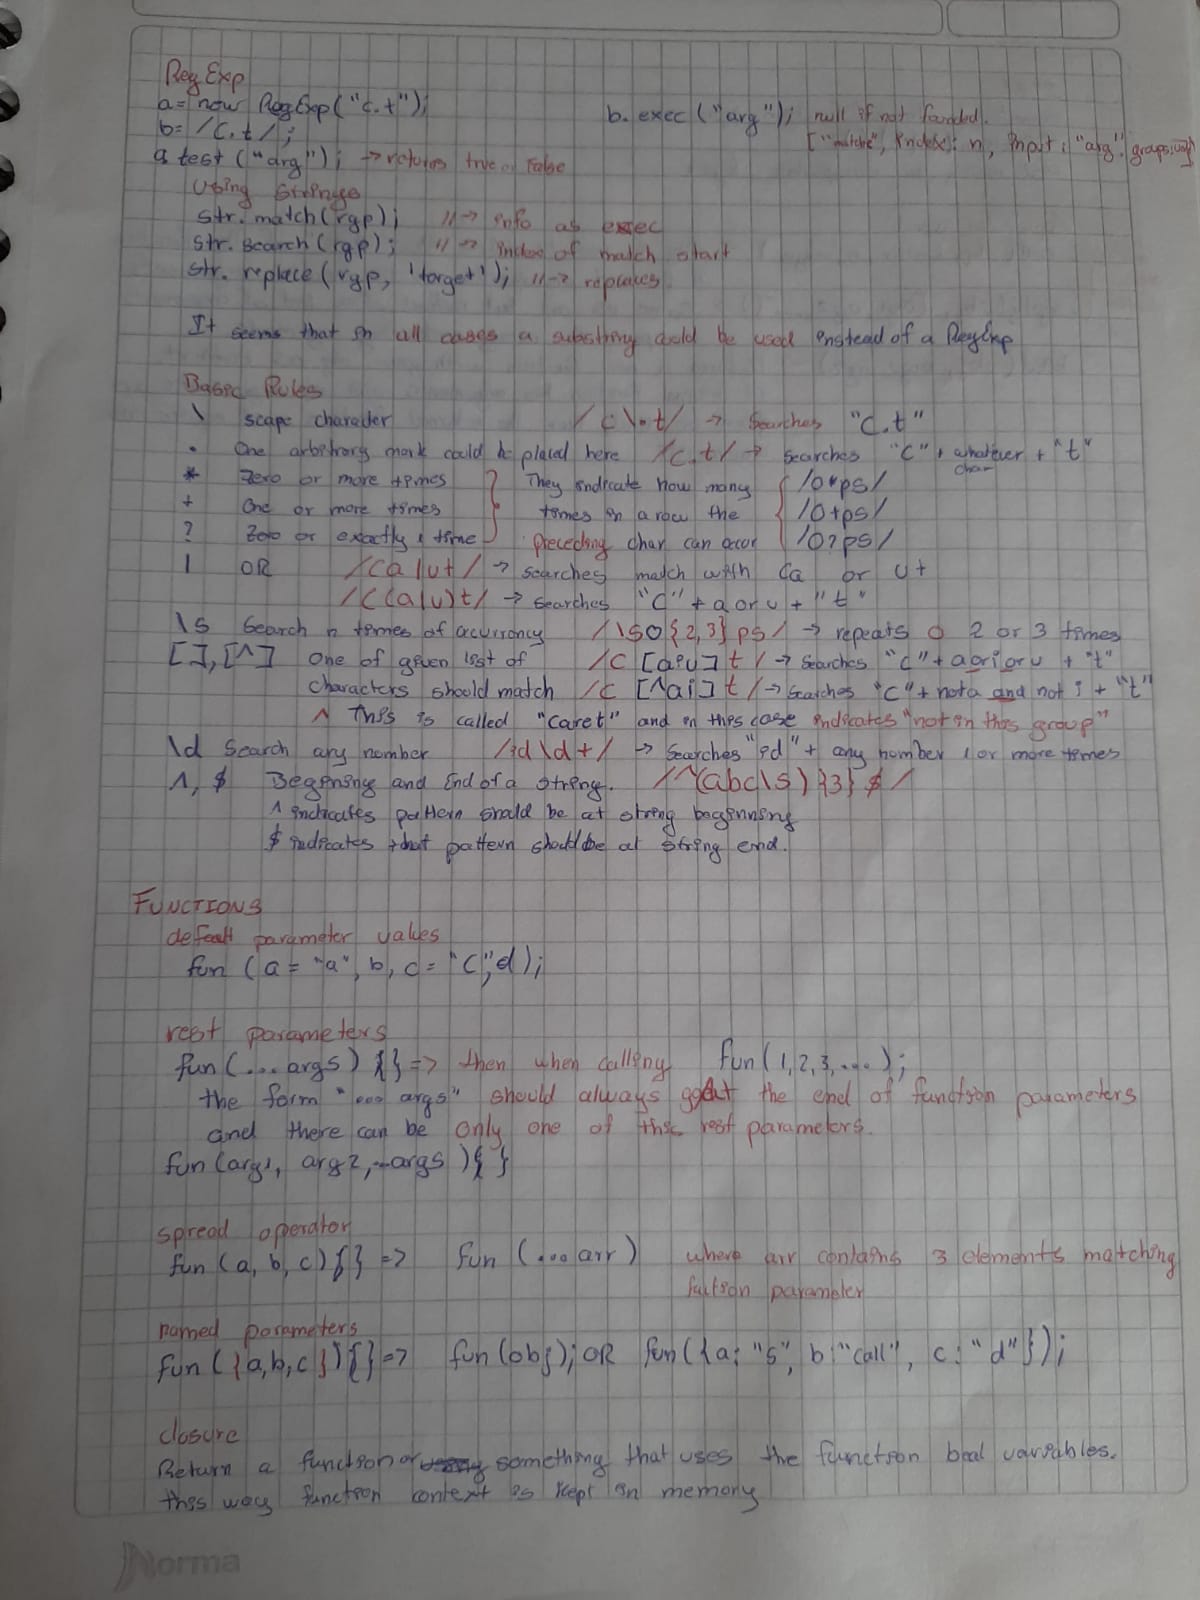 RegExp
a = new RegExp("c.t");
b = /c.t/;
b. exec("arg"); null if not founded.
["matche", index: n, input: "arg", groups:
a test("arg"); -> returns true or False
Using Strings
str. match(rgp); //-> info as exec
str. search(rgp); //-> index of match start
str. replace(rgp, 'target'); //-> replaces
It seems that in all cases a substring could be used instead of a RegExp
Basic Rules
\ scape character /c\.t/ -> Searches "c.t"
. One arbitrary mark could be placed here /c.t/ -> searches "c" + whatever char + "t"
* Zero or more times } They indicate how many { /o*ps/
+ One or more times times in a row the /o+ps/
? Zero or exactly 1 time preceding char can occur /o?ps/
| OR /ca|ut/ -> searches match with ca or ut
/c(a|u)t/ -> searches "c" + a or u + "t"
\s Search n times of occurrency /\so{2,3}ps/ -> repeats o 2 or 3 times
[], [^] One of given list of /c[aiu]t/ -> searches "c" + a or i or u + "t"
characters should match /c[^ai]t/ -> searches "c" + not a and not i + "t"
^ This is called "caret" and in this case indicates "not in this group"
\d Search any number /id\d+/ -> searches "id" + any number 1 or more times
^, $ Beginning and End of a string. /^(abc\s){3}$/
^ indicates pattern should be at string beginning
$ indicates that pattern should be at string end.
FUNCTIONS
default parameter values
fun (a = "a", b, c = "c", d);
rest parameters
fun(... args) {} => then when calling fun(1,2,3,...);
the form "... args" should always go at the end of function parameters
and there can be only one of this rest parameters.
fun(arg1, arg2, ...args ){ }
spread operator
fun (a, b, c) {} => fun (... arr) where arr contains 3 elements matching
fuction parameter
named parameters
fun ({a,b,c}) {} => fun(obj); OR fun({a: "5", b: "call", c: "d"});
closure
Return a function or something that uses the function local variables.
this way function context is kept in memory
Norma